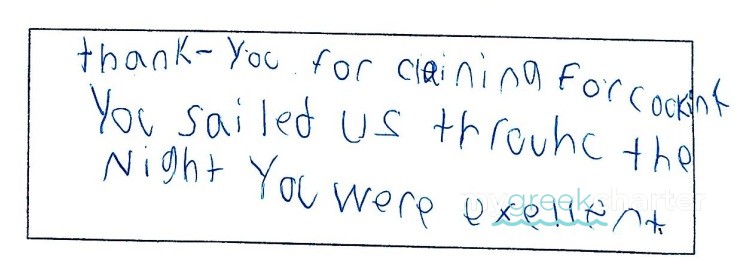 thank-You for claining For cockint
You sailed us throuhc the
Night You were exellent
mygreekcharter